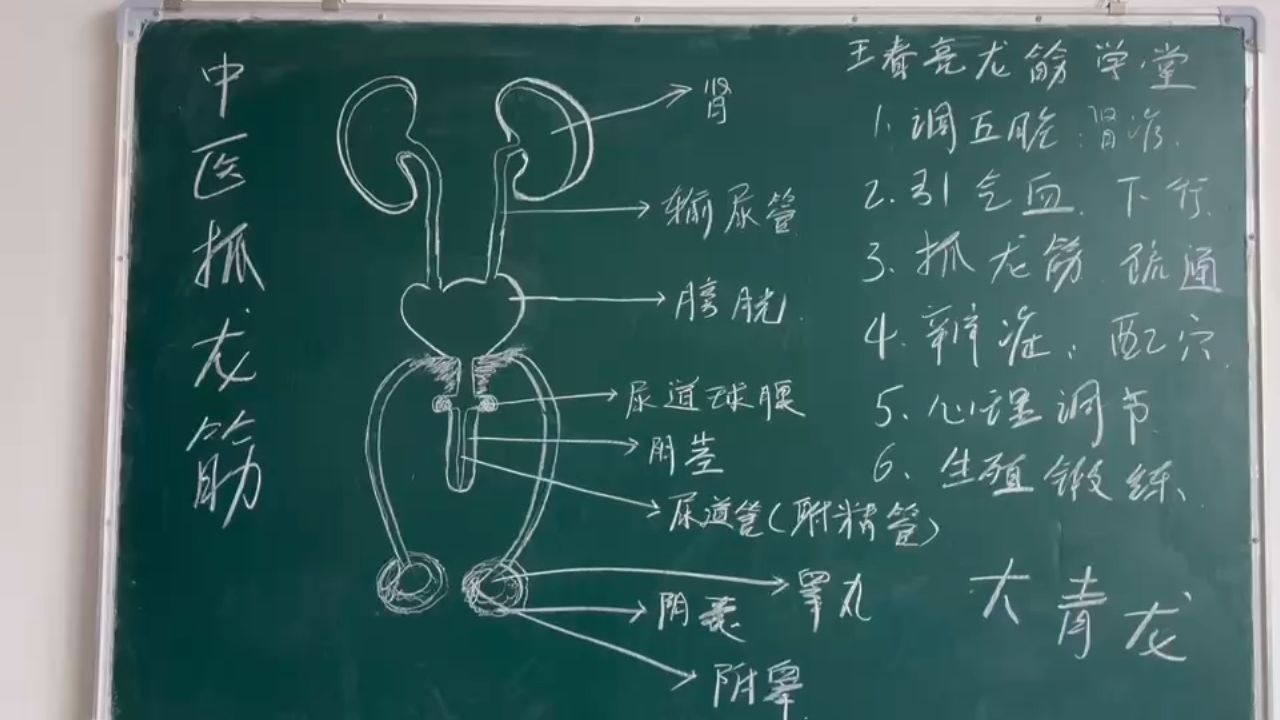 中医抓龙筋
肾
输尿管
膀胱
尿道球腺
阴茎
尿道管(射精管)
睾丸
阴囊
附睾
王春亮龙筋学堂
1.调五脏:肾准.
2.引气血.下行.
3.抓龙筋.疏通
4.辨症:配穴.
5.心理调节
6.生殖锻练、
大青龙